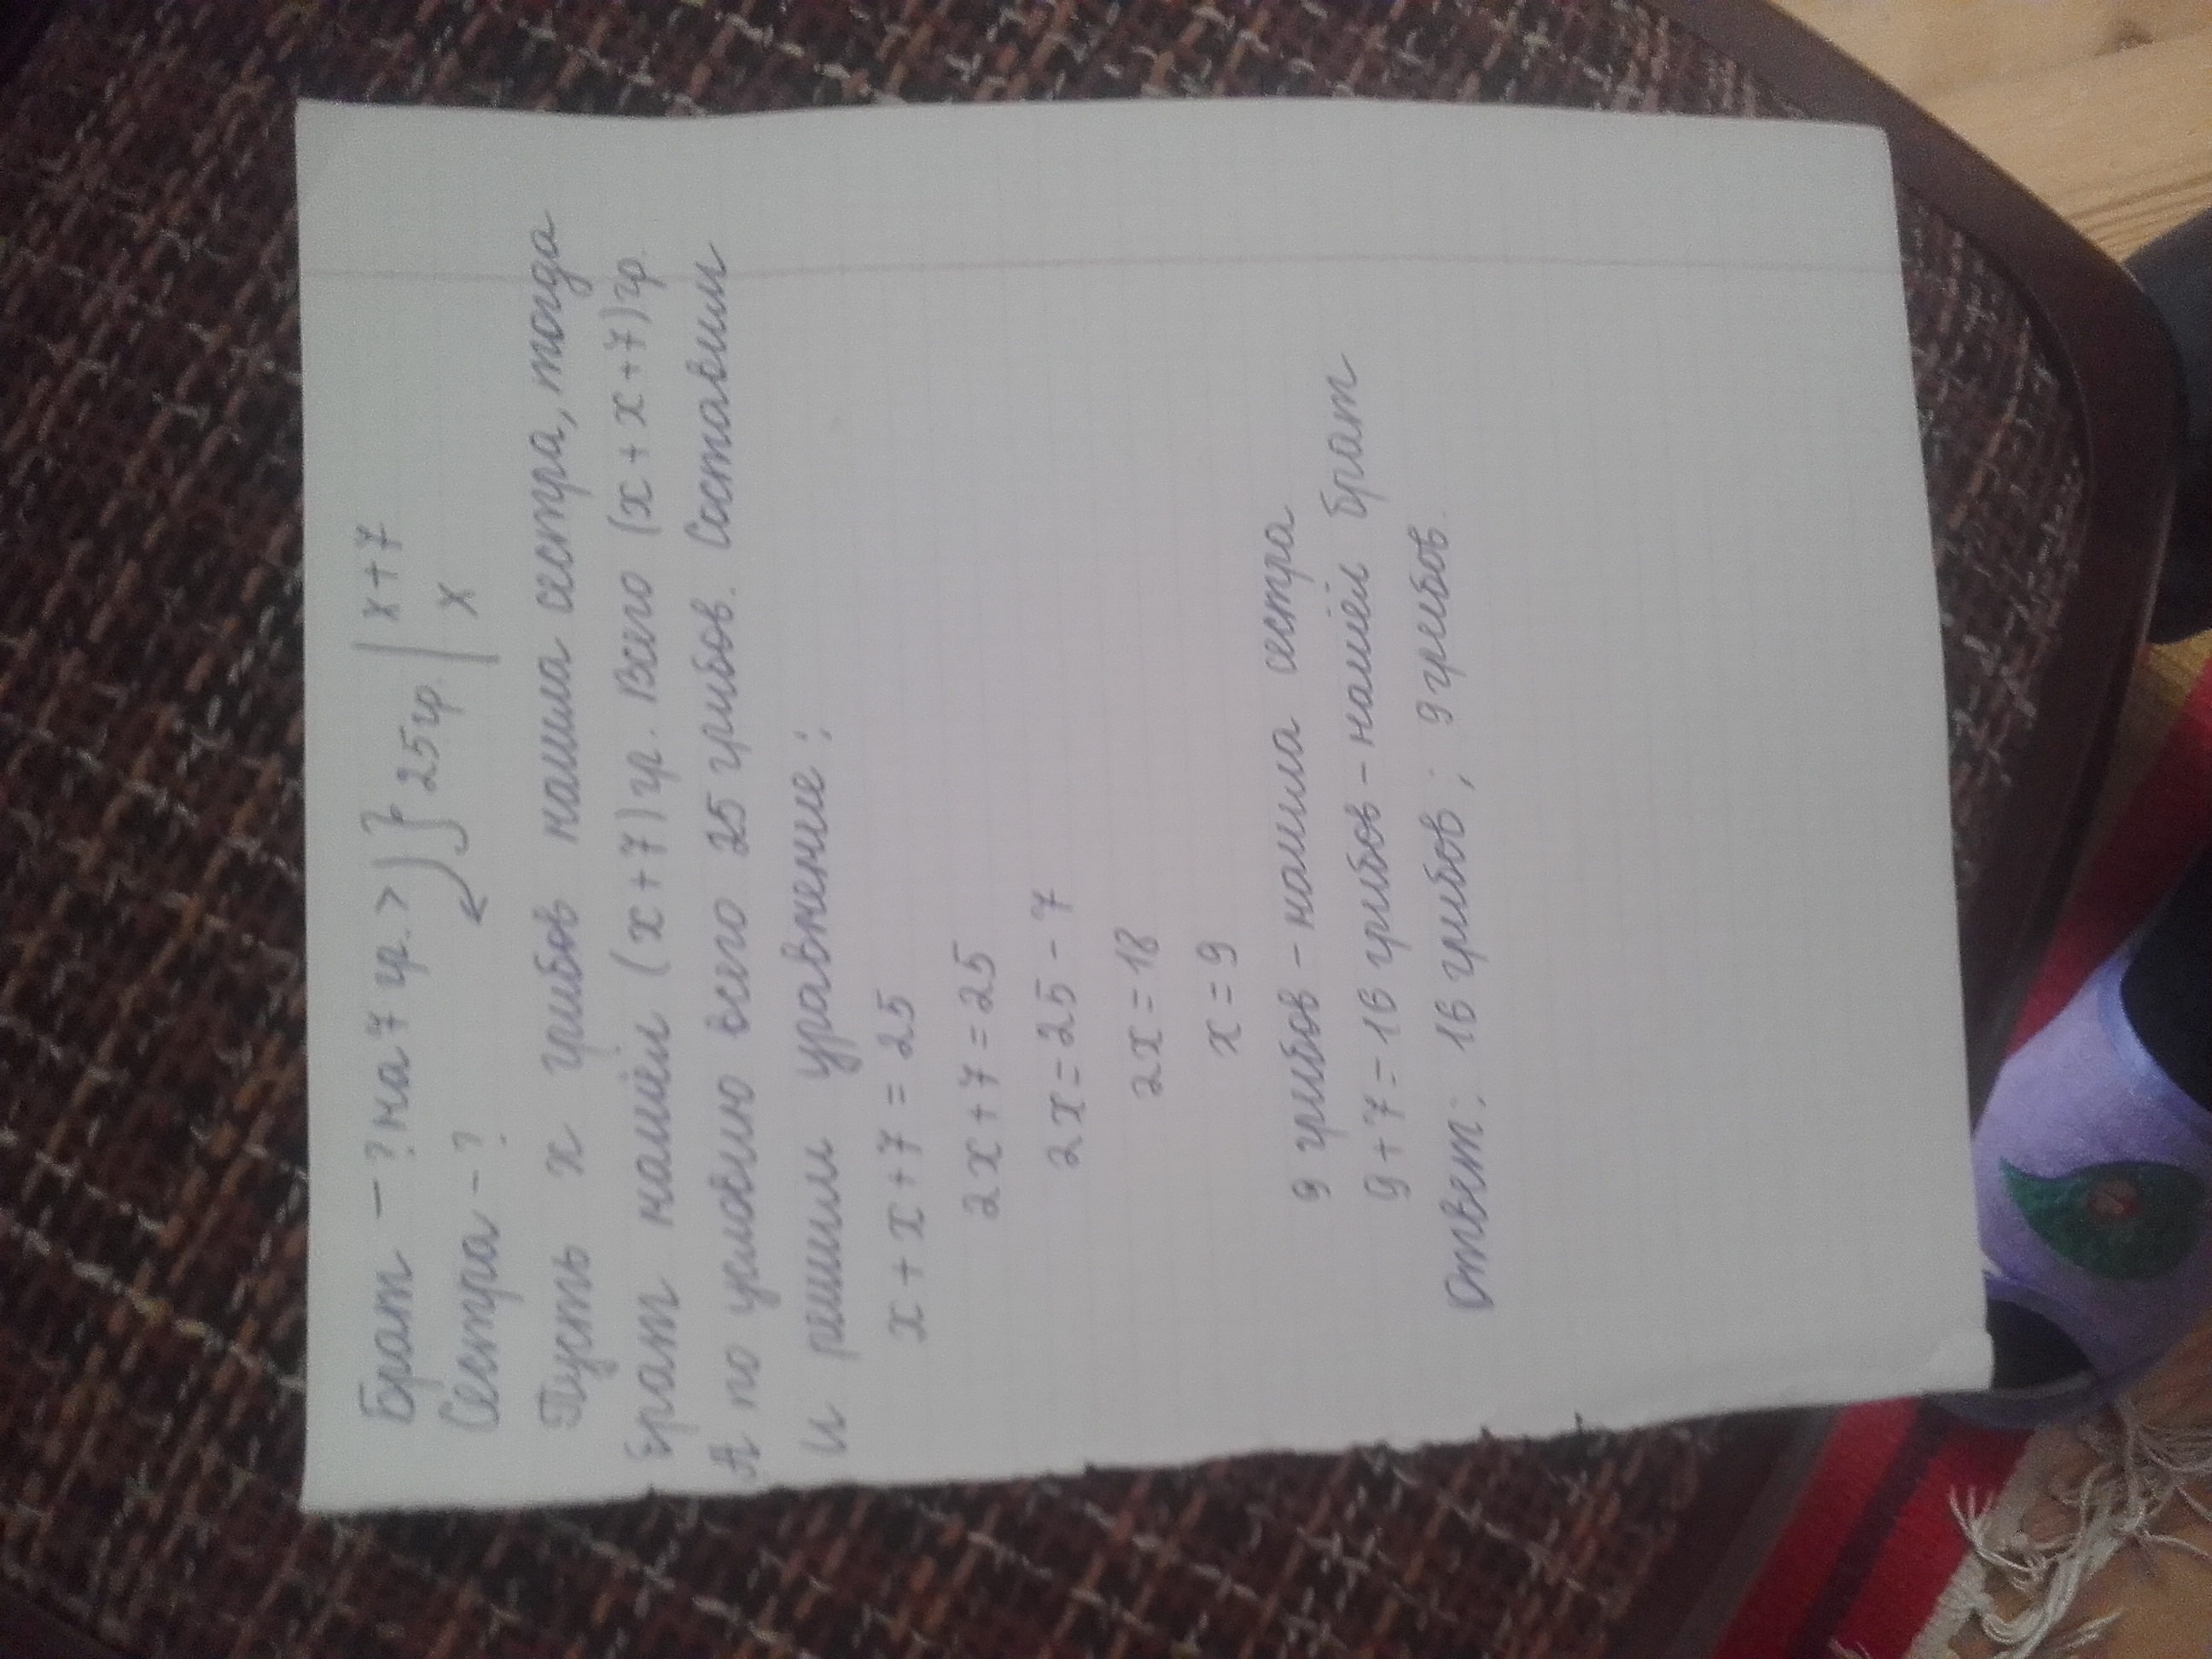 Брат - ? на 7 гр. > } 25 гр. | x + 7
Сестра - ? | x
Пусть x грибов нашла сестра, тогда
брат нашёл (x + 7) гр. Всего (x + x + 7) гр.
А по условию всего 25 грибов. Составим
и решим уравнение:
x + x + 7 = 25
2x + 7 = 25
2x = 25 - 7
2x = 18
x = 9
9 грибов - нашла сестра
9 + 7 = 16 грибов - нашёл брат
Ответ: 16 грибов; 9 грибов.